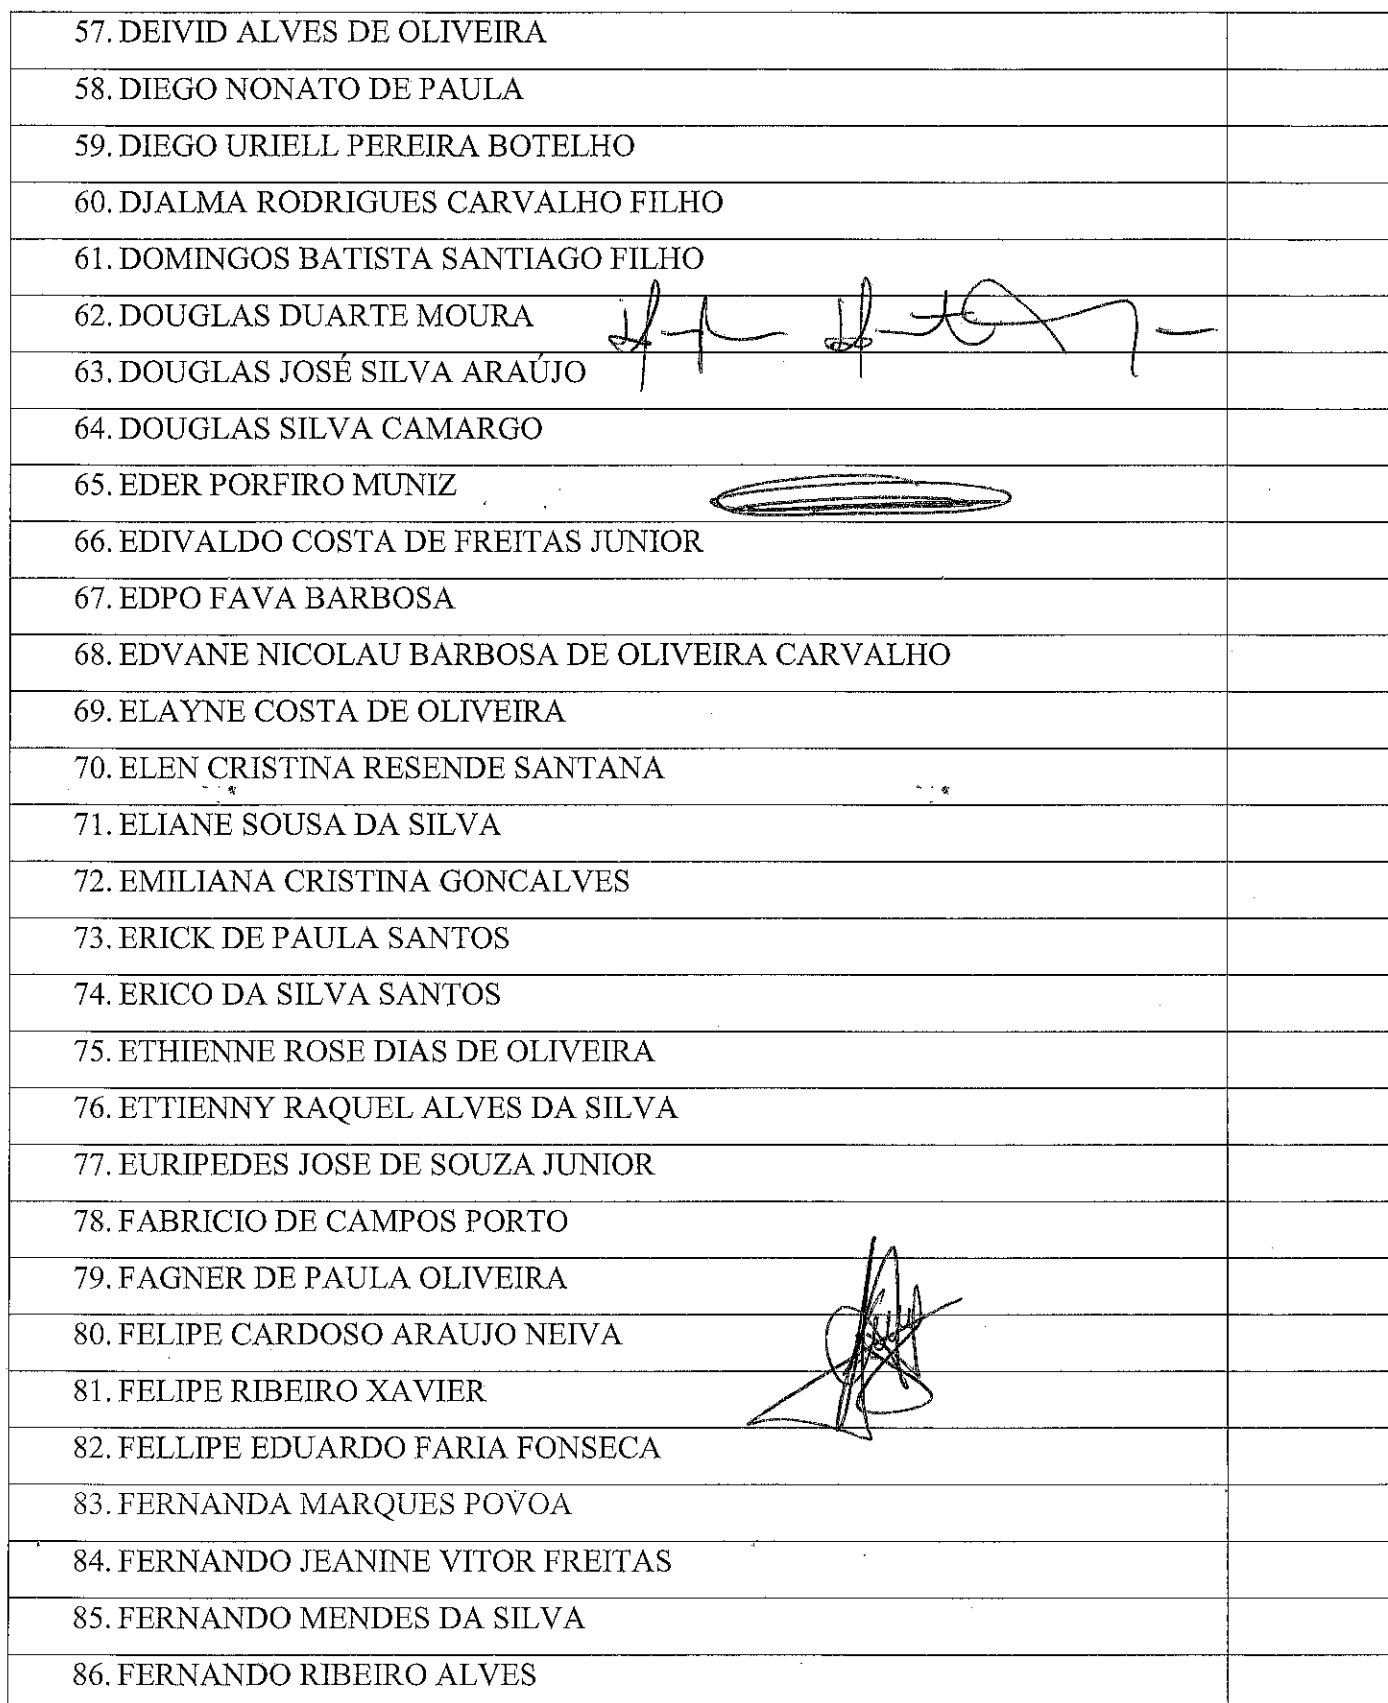 57. DEIVID ALVES DE OLIVEIRA
58. DIEGO NONATO DE PAULA
59. DIEGO URIELL PEREIRA BOTELHO
60. DJALMA RODRIGUES CARVALHO FILHO
61. DOMINGOS BATISTA SANTIAGO FILHO
62. DOUGLAS DUARTE MOURA
63. DOUGLAS JOSÉ SILVA ARAÚJO
64. DOUGLAS SILVA CAMARGO
65. EDER PORFIRO MUNIZ
66. EDIVALDO COSTA DE FREITAS JUNIOR
67. EDPO FAVA BARBOSA
68. EDVANE NICOLAU BARBOSA DE OLIVEIRA CARVALHO
69. ELAYNE COSTA DE OLIVEIRA
70. ELEN CRISTINA RESENDE SANTANA
71. ELIANE SOUSA DA SILVA
72. EMILIANA CRISTINA GONCALVES
73. ERICK DE PAULA SANTOS
74. ERICO DA SILVA SANTOS
75. ETHIENNE ROSE DIAS DE OLIVEIRA
76. ETTIENNY RAQUEL ALVES DA SILVA
77. EURIPEDES JOSE DE SOUZA JUNIOR
78. FABRICIO DE CAMPOS PORTO
79. FAGNER DE PAULA OLIVEIRA
80. FELIPE CARDOSO ARAUJO NEIVA
81. FELIPE RIBEIRO XAVIER
82. FELLIPE EDUARDO FARIA FONSECA
83. FERNANDA MARQUES POVOA
84. FERNANDO JEANINE VITOR FREITAS
85. FERNANDO MENDES DA SILVA
86. FERNANDO RIBEIRO ALVES